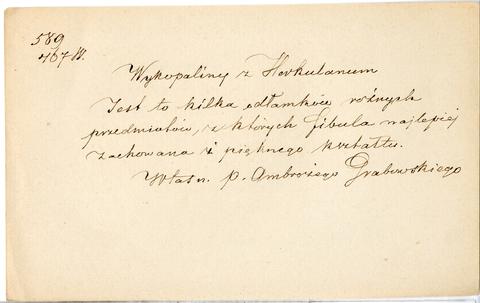 589
467 W.
Wykopaliny z Herkulanum
Jest to kilka odłamków różnych
przedmiotów, z których fibula najlepiej
zachowana i pięknego kształtu.
Własn. p. Ambrożego Grabowskiego